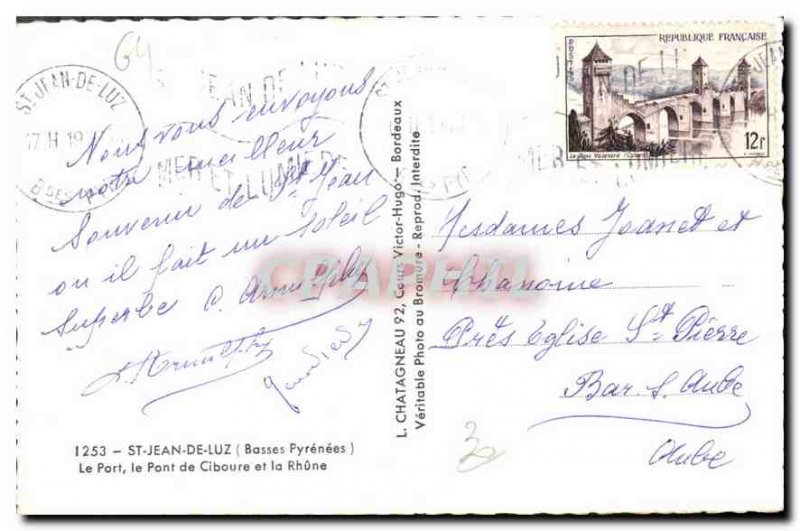 64
ST-JEAN-DE-LUZ
17 H 19
Bses PYR
ST JEAN DE LUZ
MER ET LUMIERE
Nous vous envoyons
notre meilleur
Souvenir de St Jean
ou il fait un soleil
Superbe
1253 – ST-JEAN-DE-LUZ ( Basses Pyrénées )
Le Port, le Pont de Ciboure et la Rhûne
L. CHATAGNEAU 92, Cours Victor-Hugo – Bordeaux
Véritable Photo au Bromure - Reprod. Interdite
POSTES
REPUBLIQUE FRANÇAISE
Le Pont Valentré (Cahors)
12F
Mesdames Joannet et
Chanoine
Près Eglise St Pierre
Bar. s. Aube
Aube